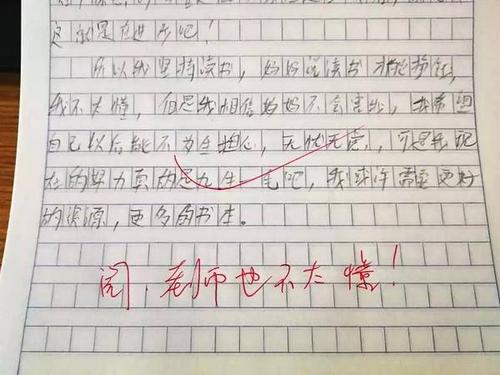 这就是在进步吧！
所以我坚持读书，妈妈说读书才能挣钱，
我不太懂，但是我相信妈妈不会害我，我希望
自己以后能不为生担心，无忧无虑，可是我现
在的努力真的是九牛一毛吧，我或许需要更好
的资源，更多的书本。
阅，老师也不太懂！